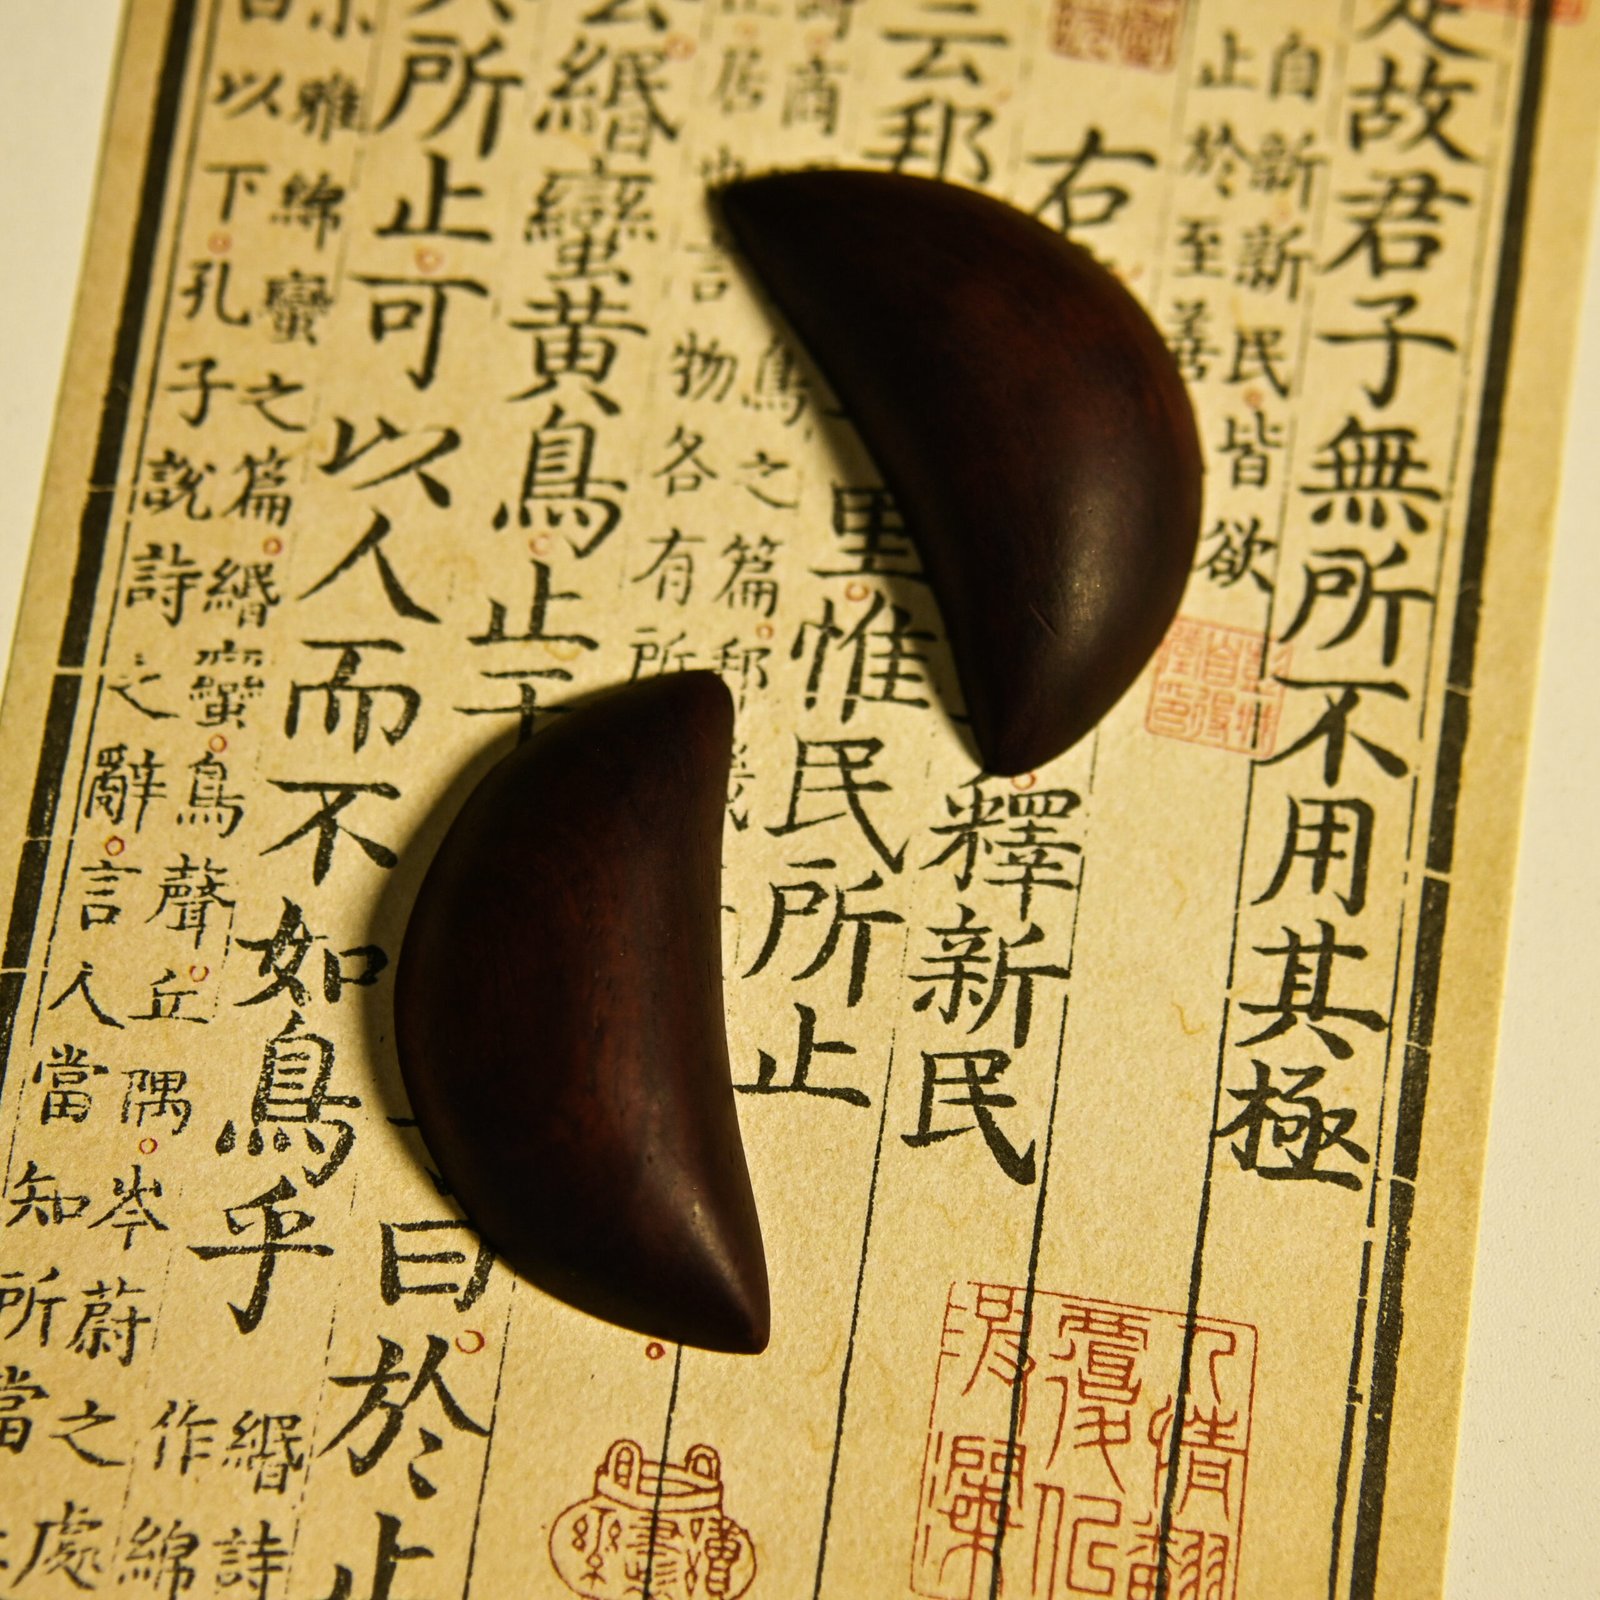 是故君子無所不用其極
自新新民皆欲
止於至善
右
釋新民
云邦
里惟民所止
商
鳥之篇邦
居
言物各有所
云緡蠻黃鳥止于
曰於止
所止可以人而不如鳥乎
緡詩
作綿
小雅綿蠻之篇緡蠻鳥聲丘隅岑蔚之處
以下孔子說詩之辭言人當知所當